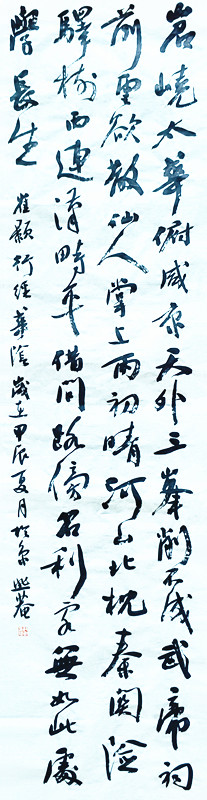 岧嶢太華俯咸京天外三峯削不成武帝祠
前雲欲散仙人掌上雨初晴河山北枕秦関險
驛樹西連漢畤平借問路傍名利客無如此處
學長生
崔顥行經華陰歲在甲辰夏月於京